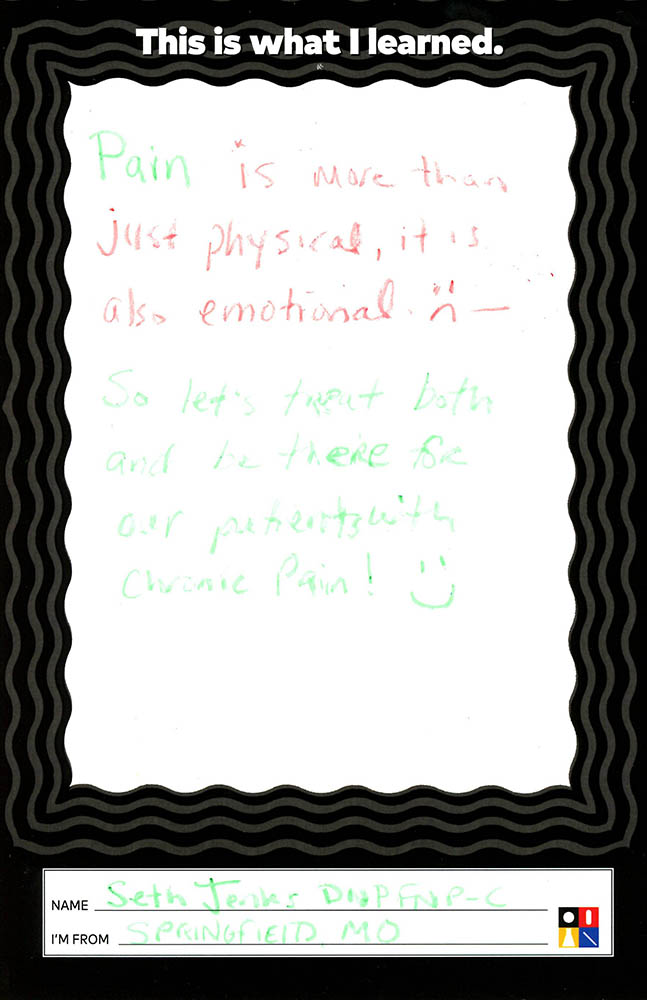 This is what I learned.
Pain is more than
just physical, it is
also emotional. :( —
So let's treat both
and be there for
our patients with
chronic Pain! :)
NAME Seth Jenks DNP FNP-C
I'M FROM SPRINGFIELD, MO